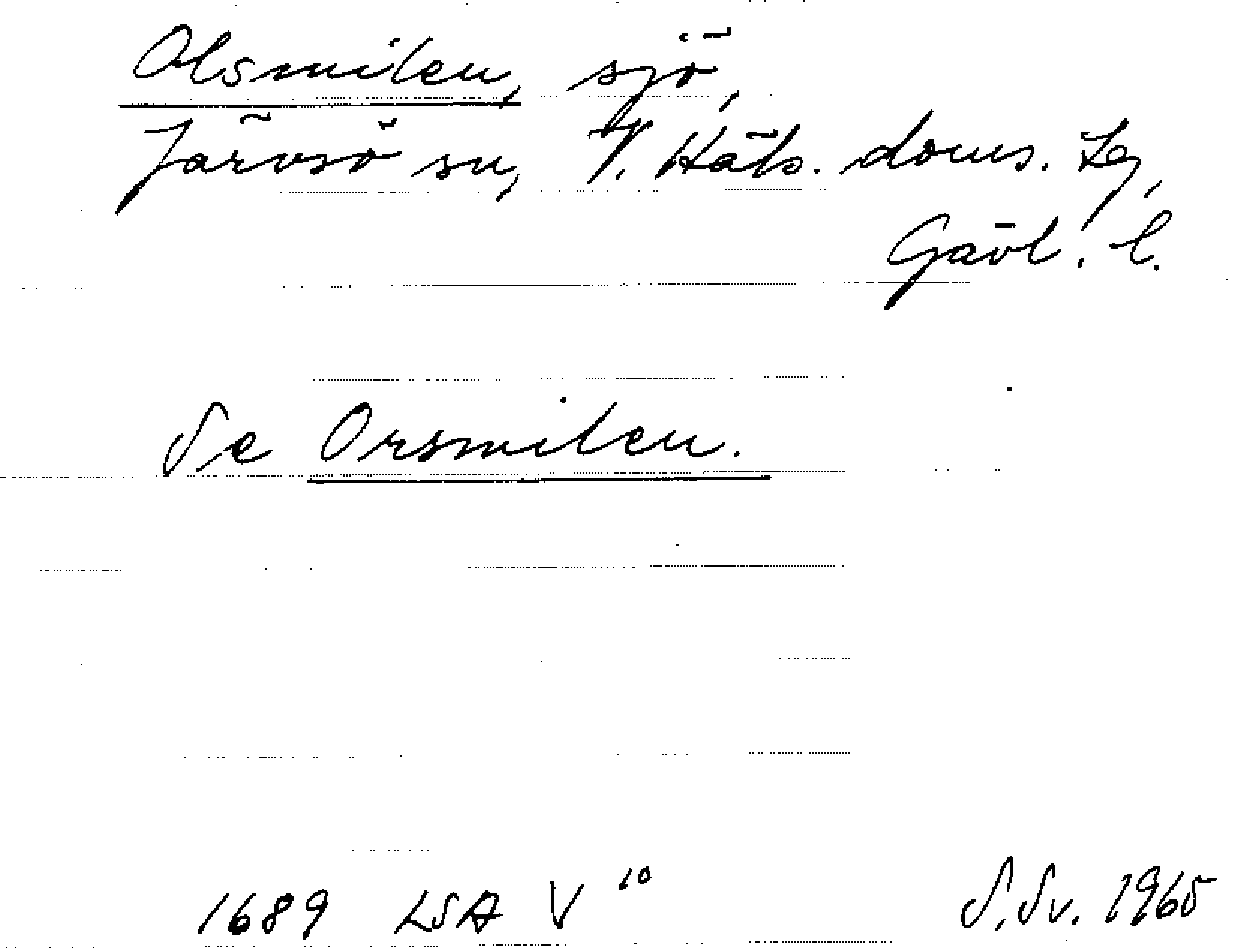 Olsmilen, sjö,
Järvsö sn, V. Häls. doms. Lg,
Gävl. l.
Se Orsmilen.
1689 LSA V 10 S. Sv. 1965